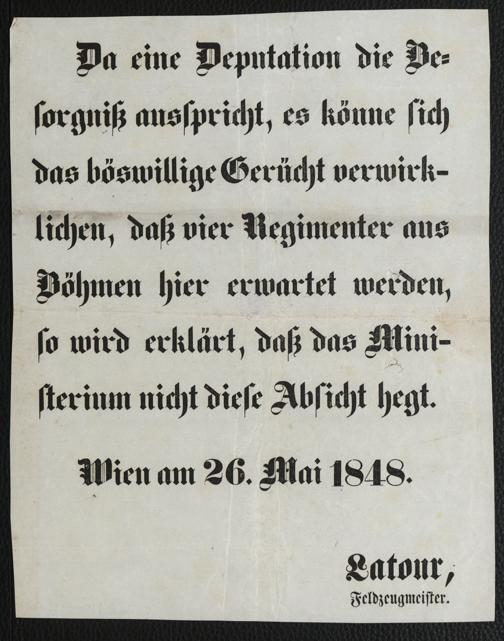 Da eine Deputation die Be-
sorgniß ausspricht, es könne sich
das böswillige Gerücht verwirk-
lichen, daß vier Regimenter aus
Böhmen hier erwartet werden,
so wird erklärt, daß das Mini-
sterium nicht diese Absicht hegt.
Wien am 26. Mai 1848.
Latour,
Feldzeugmeister.